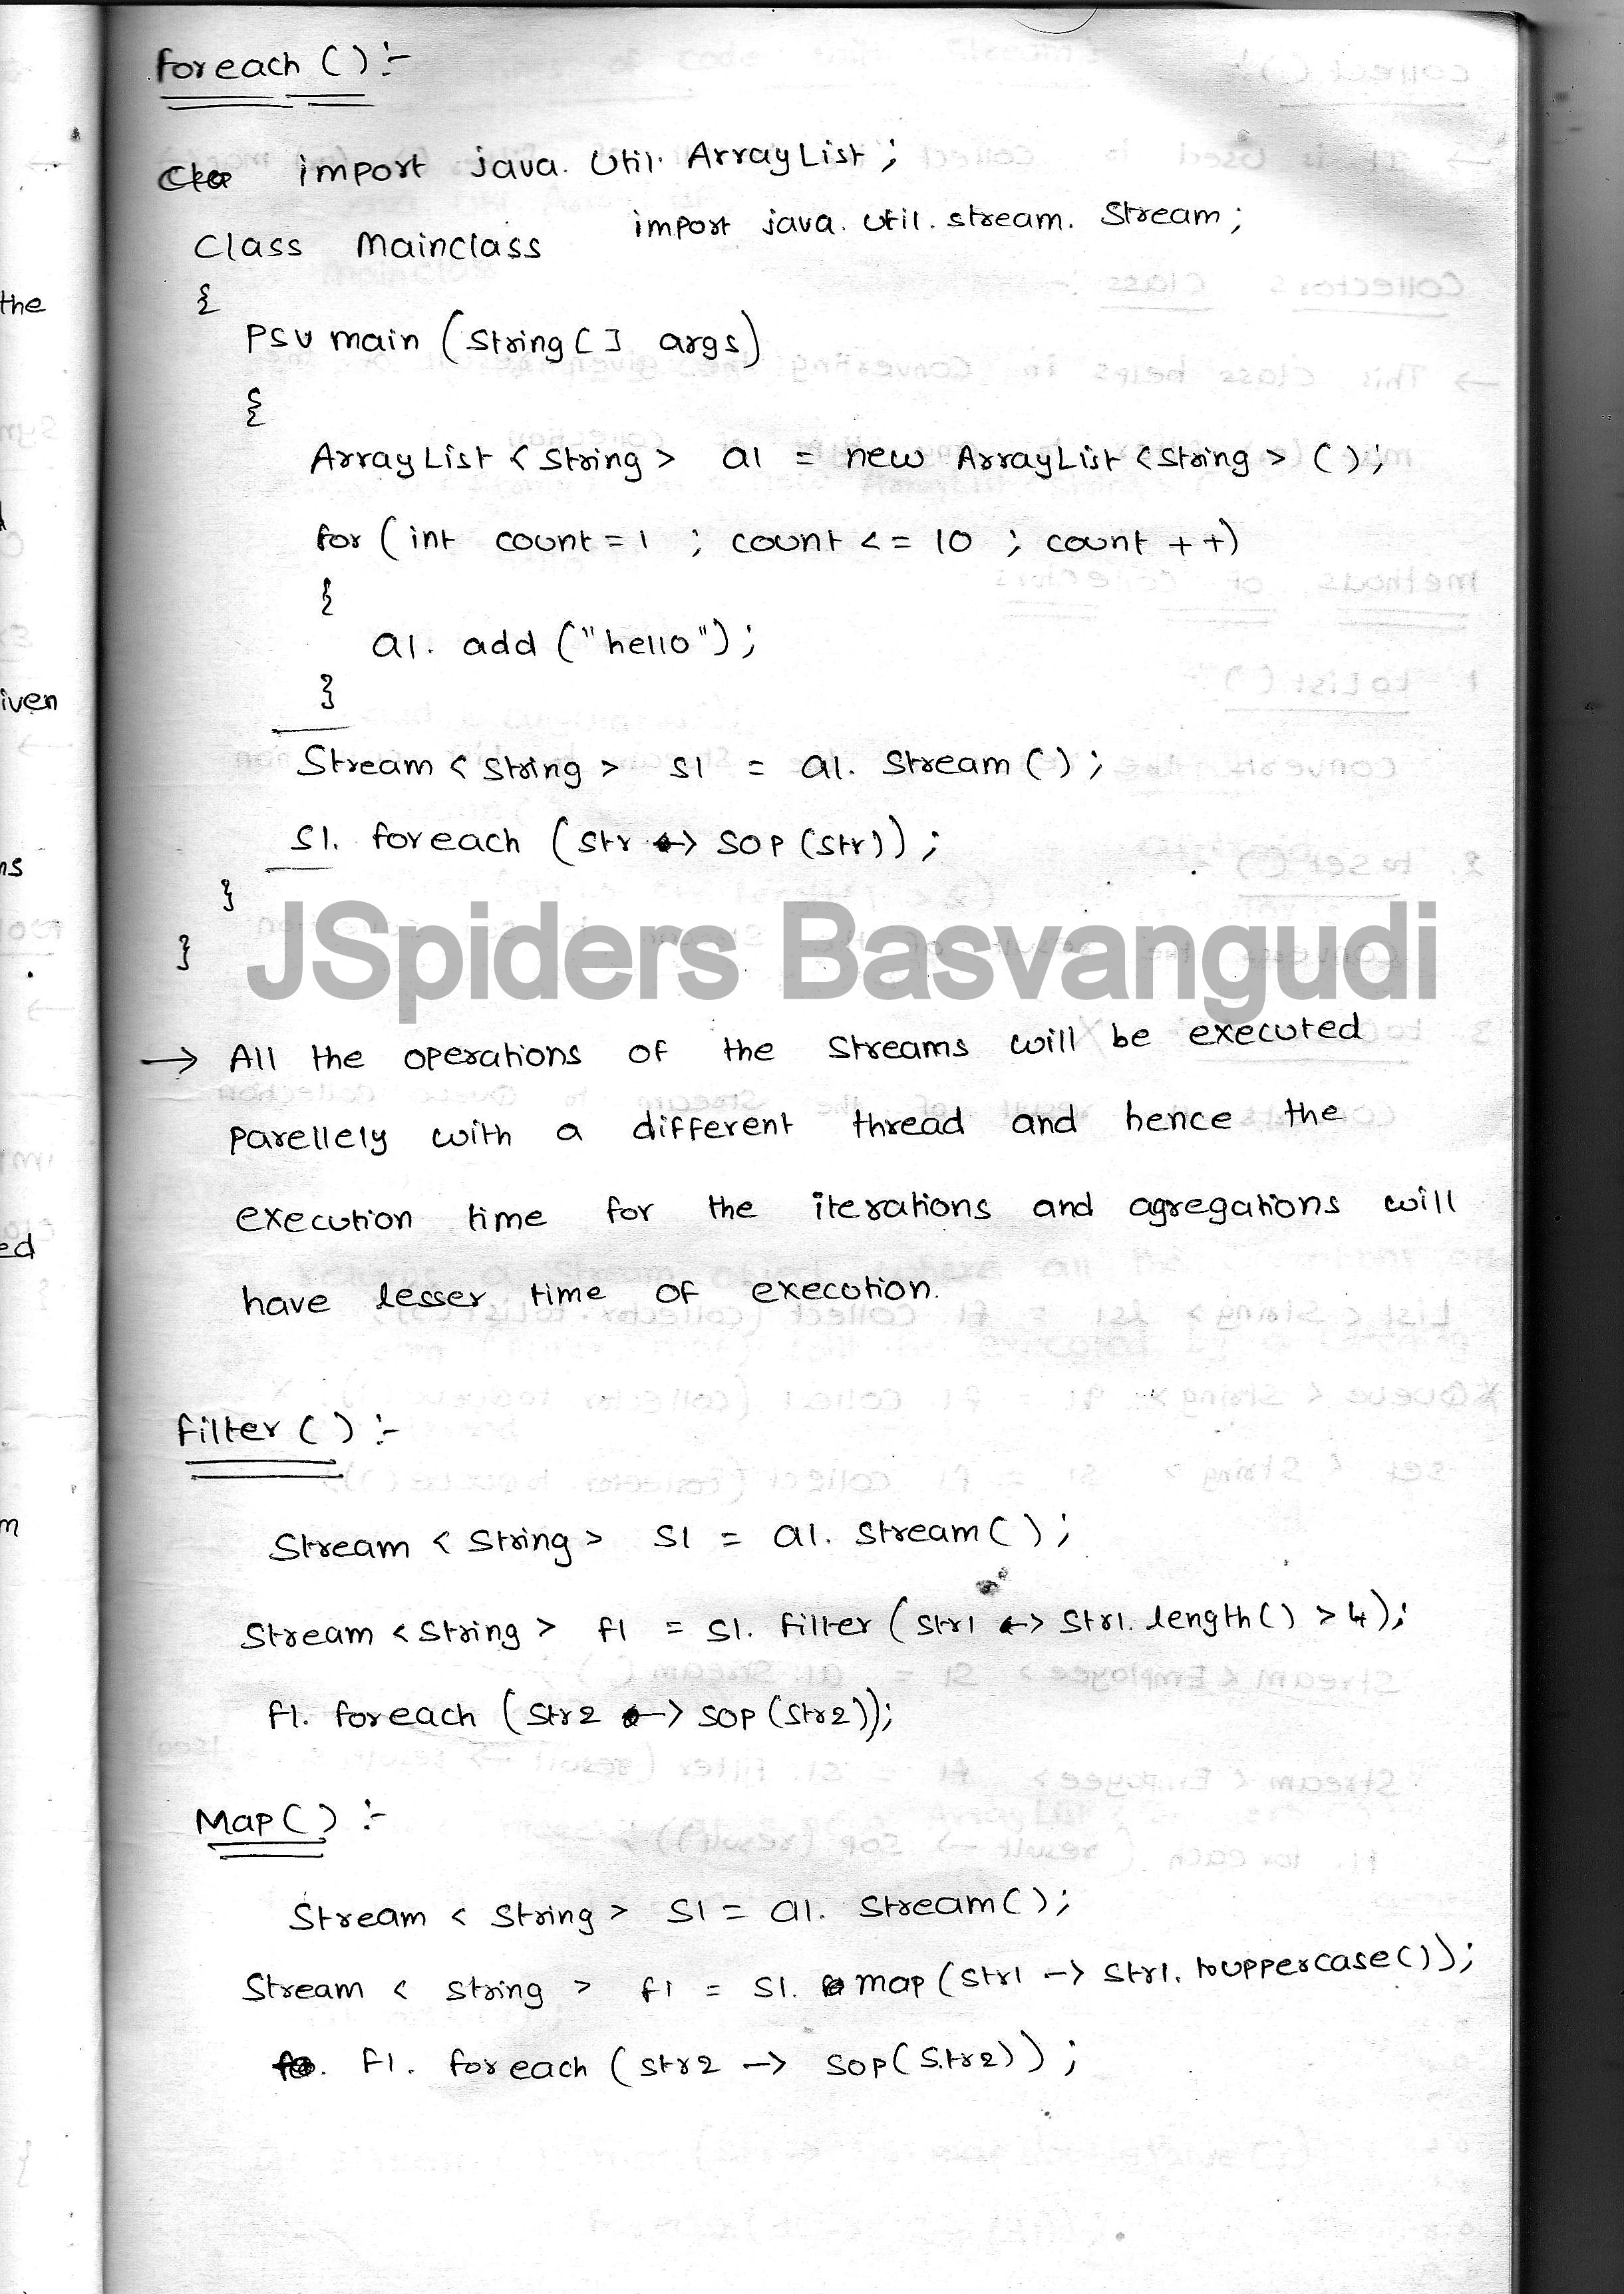 foreach () :-
import java. Util. ArrayList ;
import java. util. stream. Stream ;
Class Mainclass
{
PSV main (String [] args)
{
ArrayList < String > a1 = new ArrayList < String > () ;
for ( int count = 1 ; count <= 10 ; count ++)
{
a1. add ("hello") ;
}
Stream < String > S1 = a1. Stream () ;
S1. foreach (str -> SOP (str)) ;
}
}
JSpiders Basvangudi
→ All the operations of the Streams will be executed
parellely with a different thread and hence the
execution time for the iterations and agregations will
have lesser time of execution.
filter () :-
Stream < String > S1 = a1. Stream () ;
Stream < String > f1 = S1. filter ( str1 -> str1. length () > 4 ) ;
f1. foreach ( str2 -> SOP (str2)) ;
Map () :-
Stream < String > S1 = a1. Stream () ;
Stream < String > f1 = S1. map ( str1 -> str1. touppercase ()) ;
f1. foreach ( str2 -> SOP ( str2)) ;
the
iven
ns
ed
m